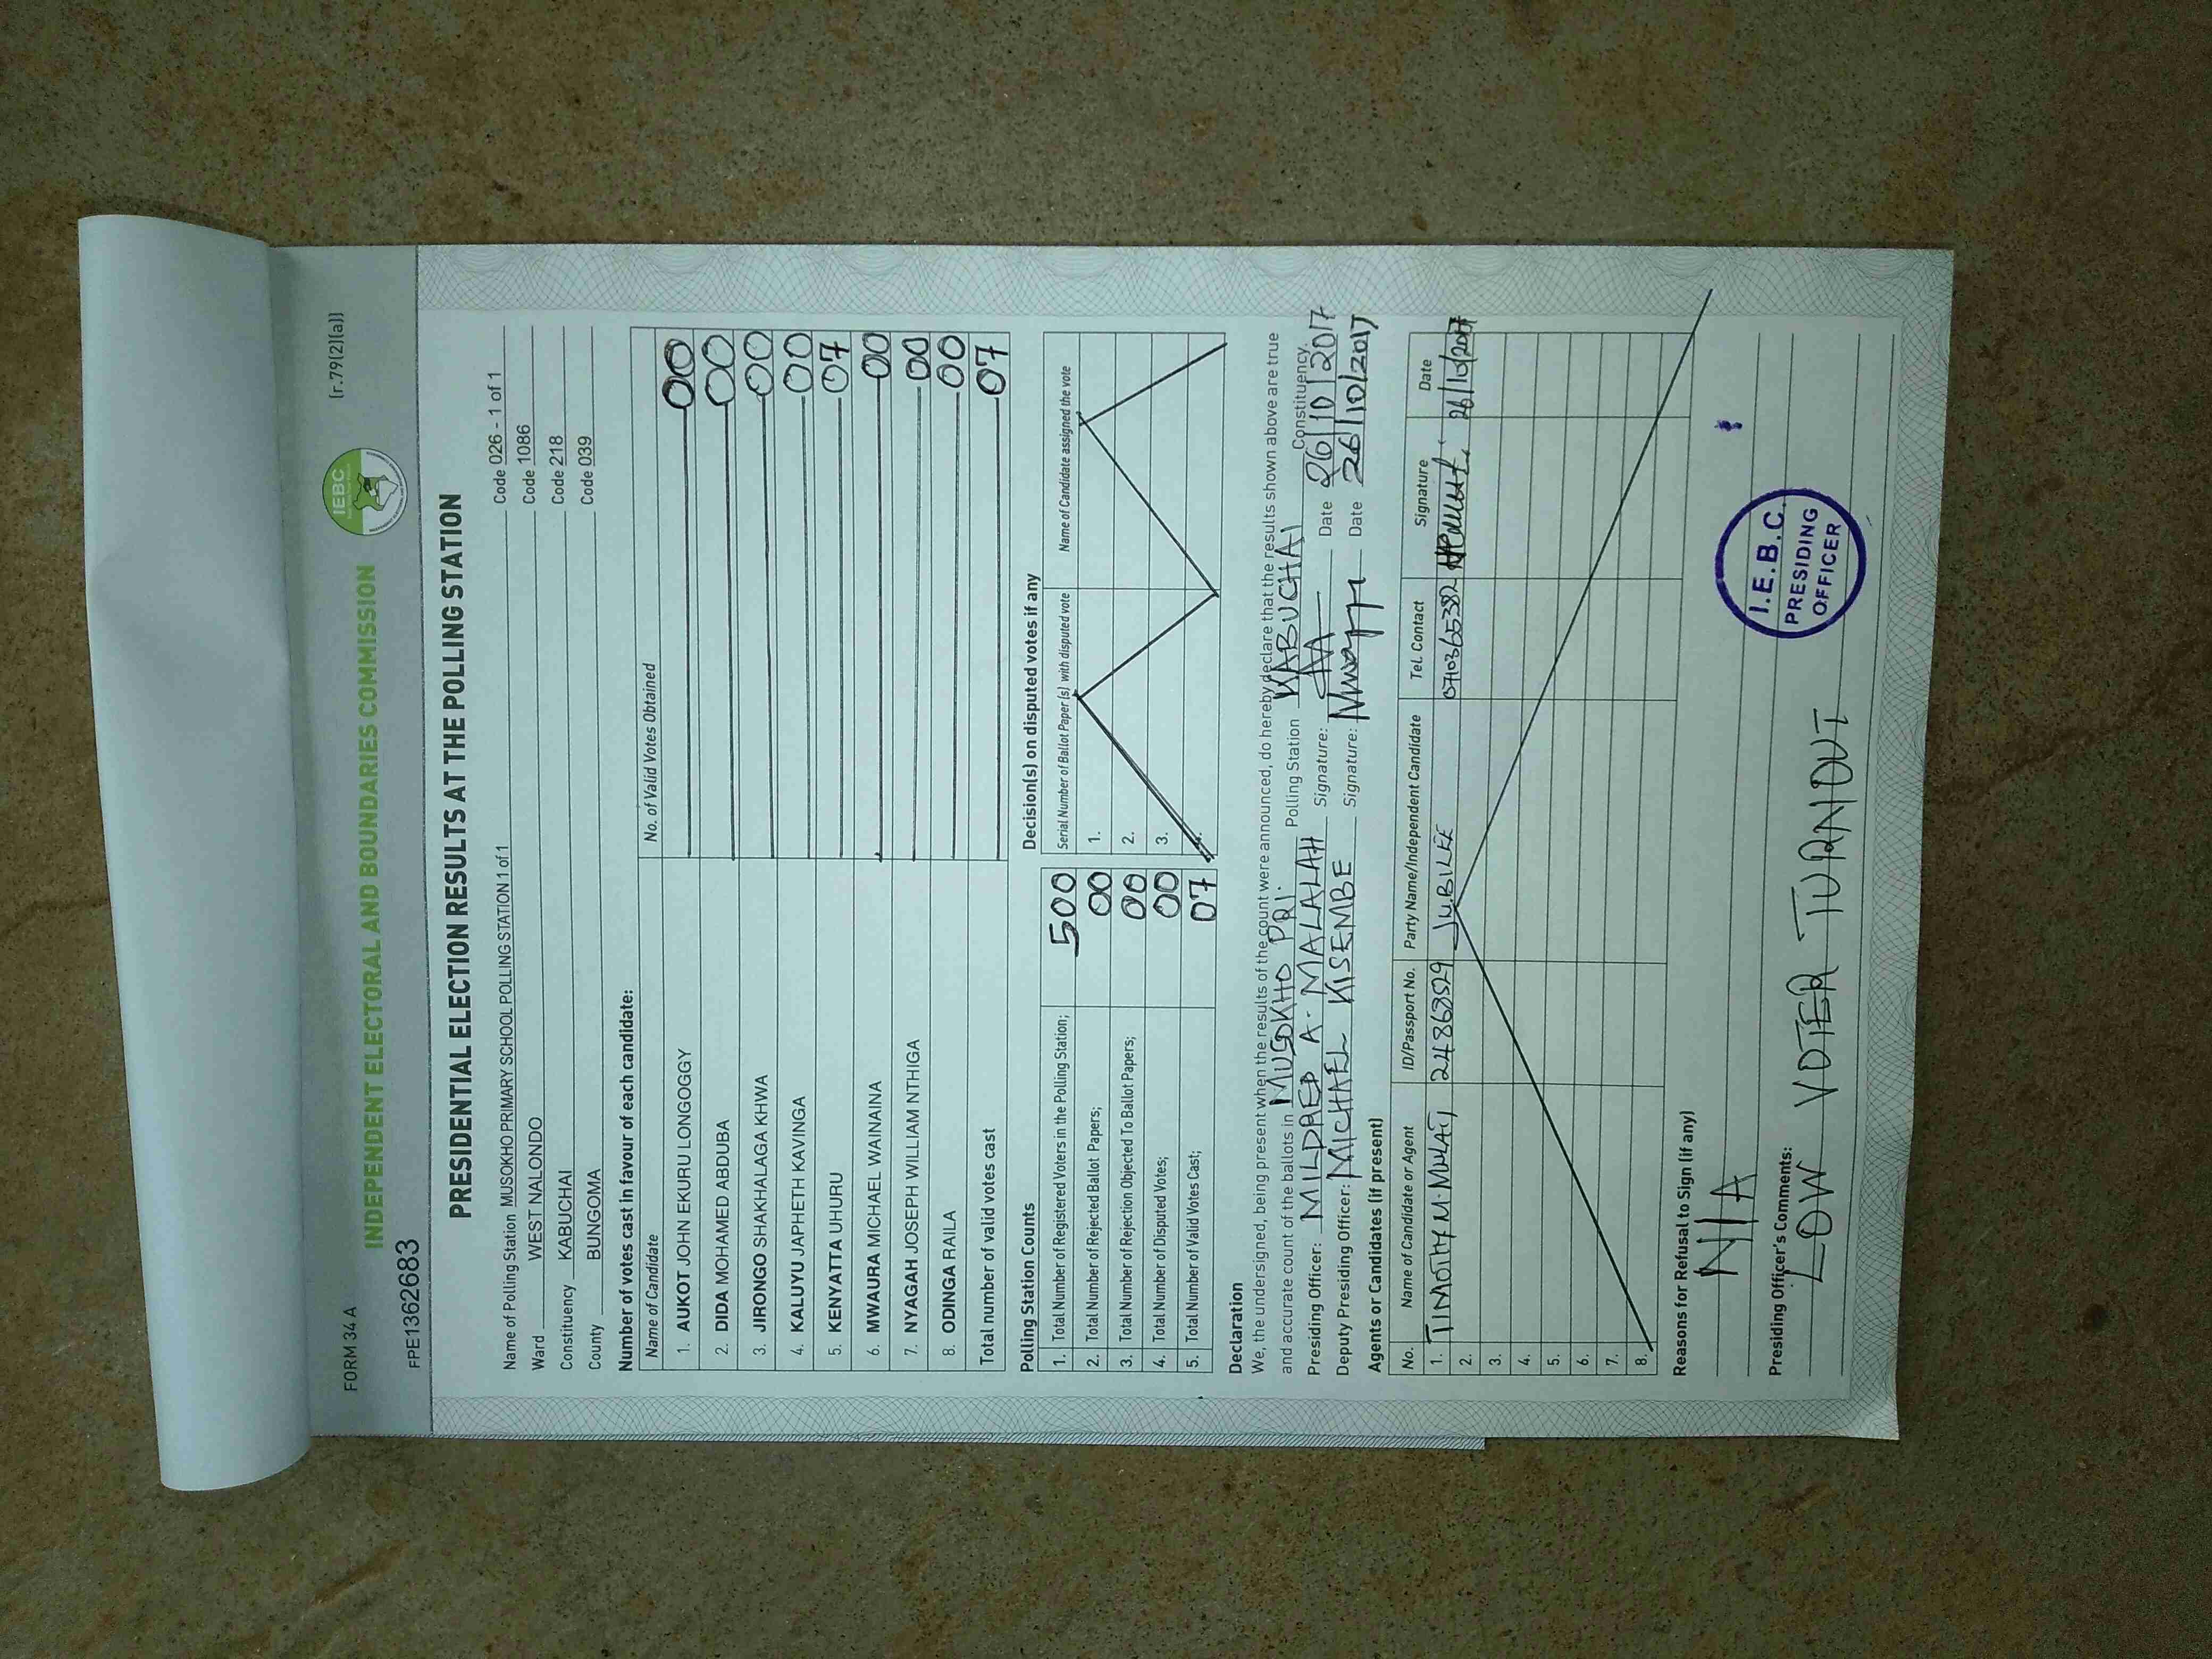 FORM 34 A
[r.79(2)(a)]
IEBC
INDEPENDENT ELECTORAL AND BOUNDARIES COMMISSION
FPE1362683
PRESIDENTIAL ELECTION RESULTS AT THE POLLING STATION
Name of Polling Station MUSOKHO PRIMARY SCHOOL POLLING STATION 1 of 1 Code 026 - 1 of 1
Ward WEST NALONDO Code 1086
Constituency KABUCHAI Code 218
County BUNGOMA Code 039
Number of votes cast in favour of each candidate:
Name of Candidate No. of Valid Votes Obtained
1. AUKOT JOHN EKURU LONGOGGY 00
2. DIDA MOHAMED ABDUBA 00
3. JIRONGO SHAKHALAGA KHWA 00
4. KALUYU JAPHETH KAVINGA 00
5. KENYATTA UHURU 07
6. MWAURA MICHAEL WAINAINA 00
7. NYAGAH JOSEPH WILLIAM NTHIGA 00
8. ODINGA RAILA 00
Total number of valid votes cast 07
Polling Station Counts
1. Total Number of Registered Voters in the Polling Station; 500
2. Total Number of Rejected Ballot Papers; 00
3. Total Number of Rejection Objected To Ballot Papers; 00
4. Total Number of Disputed Votes; 00
5. Total Number of Valid Votes Cast; 07
Decision(s) on disputed votes if any
Serial Number of Ballot Paper(s) with disputed vote Name of Candidate assigned the vote
1.
2.
3.
Declaration
We, the undersigned, being present when the results of the count were announced, do hereby declare that the results shown above are true
and accurate count of the ballots in MUSOKHO PRI. Polling Station KABUCHAI Constituency.
Presiding Officer: MILDRED A. MALALAH Signature: Date 26/10/2017
Deputy Presiding Officer: MICHAEL KISEMBE Signature: Date 26/10/2017
Agents or Candidates (if present)
No. Name of Candidate or Agent ID/Passport No. Party Name/Independent Candidate Tel. Contact Signature Date
1. TIMOTHY M. MULATI 24868529 JUBILEE 0710365382 26/10/2017
2.
3.
4.
5.
6.
7.
8.
Reasons for Refusal to Sign (if any)
N/A
Presiding Officer's Comments:
LOW VOTER TURNOUT
I.E.B.C.
PRESIDING
OFFICER